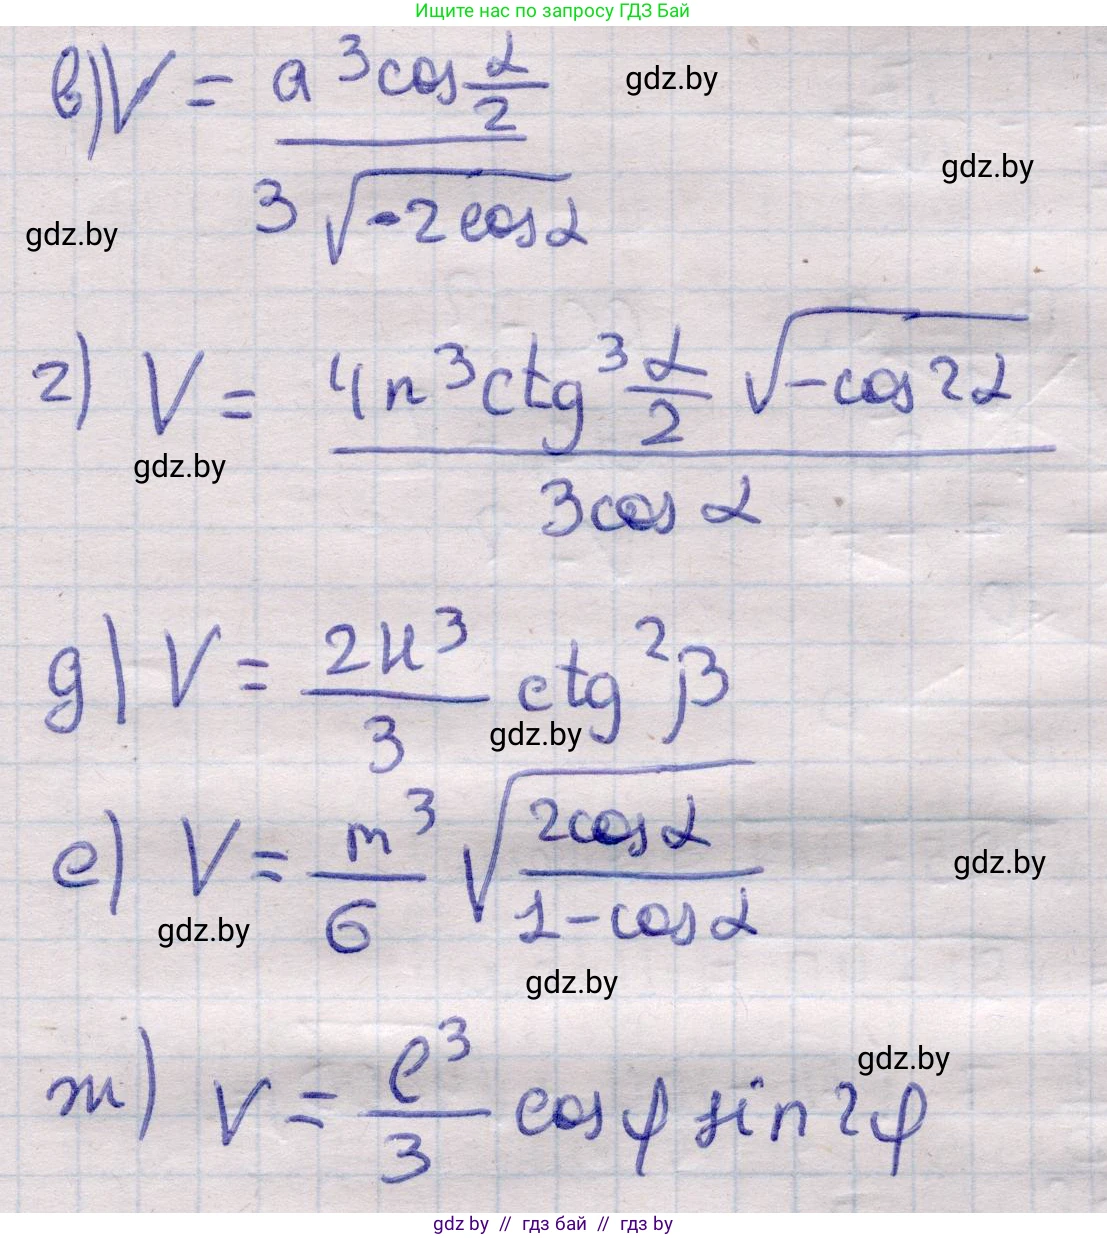 Ищите нас по запросу ГДЗ Бай
в) V = a³cos α/2 / 3√-2cosα
gdz.by
gdz.by
gdz.by
г) V = 4n³ctg³ α/2 √-cos2α / 3cos α
gdz.by
д) V = 2H³/3 ctg²β
gdz.by
е) V = m³/6 √2cosα / 1-cosα
gdz.by
gdz.by
gdz.by
ж) V = l³/3 cosφ sin2φ
gdz.by
gdz by // гдз бай // гдз by